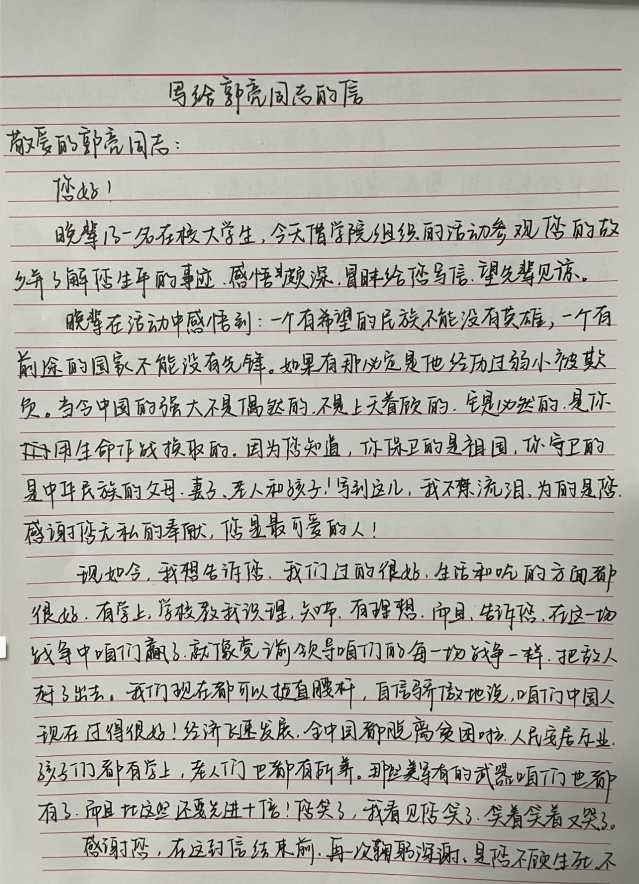 写给郭亮同志的信
敬爱的郭亮同志:
您好!
晚辈乃一名在校大学生,今天借学院组织的活动参观您的故
乡并了解您生平的事迹,感悟颇深,冒昧给您写信,望先辈见谅。
晚辈在活动中感悟到:一个有希望的民族不能没有英雄,一个有
前途的国家不能没有先锋。如果有那必定是他经历过弱小被欺
负。当今中国的强大不是偶然的,不是上天眷顾的,它是必然的,是你
们用生命作战换取的。因为您知道,你保卫的是祖国,你守卫的
是中华民族的父母、妻子、老人和孩子!写到这儿,我不禁流泪,为的是您,
感谢您无私的奉献,您是最可爱的人!
现如今,我想告诉您,我们过的很好,生活和吃的方面都
很好,有学上,学校教我识理,知体,有理想,而且,告诉您,在这一场
战争中咱们赢了,就像党前领导咱们的每一场战争一样,把敌人
赶了出去。我们现在都可以挺直腰杆,自信骄傲地说,咱们中国人
现在过得很好!经济飞速发展,全中国都脱离贫困啦,人民安居乐业,
孩子们都有学上,老人们也都有所养。那些美军有的武器咱们也都
有了,而且比这些还要先进十倍!您笑了,我看见您笑了,笑着笑着又哭了。
感谢您,在这封信结束前,再一次鞠躬深谢,是您不顾生死,不